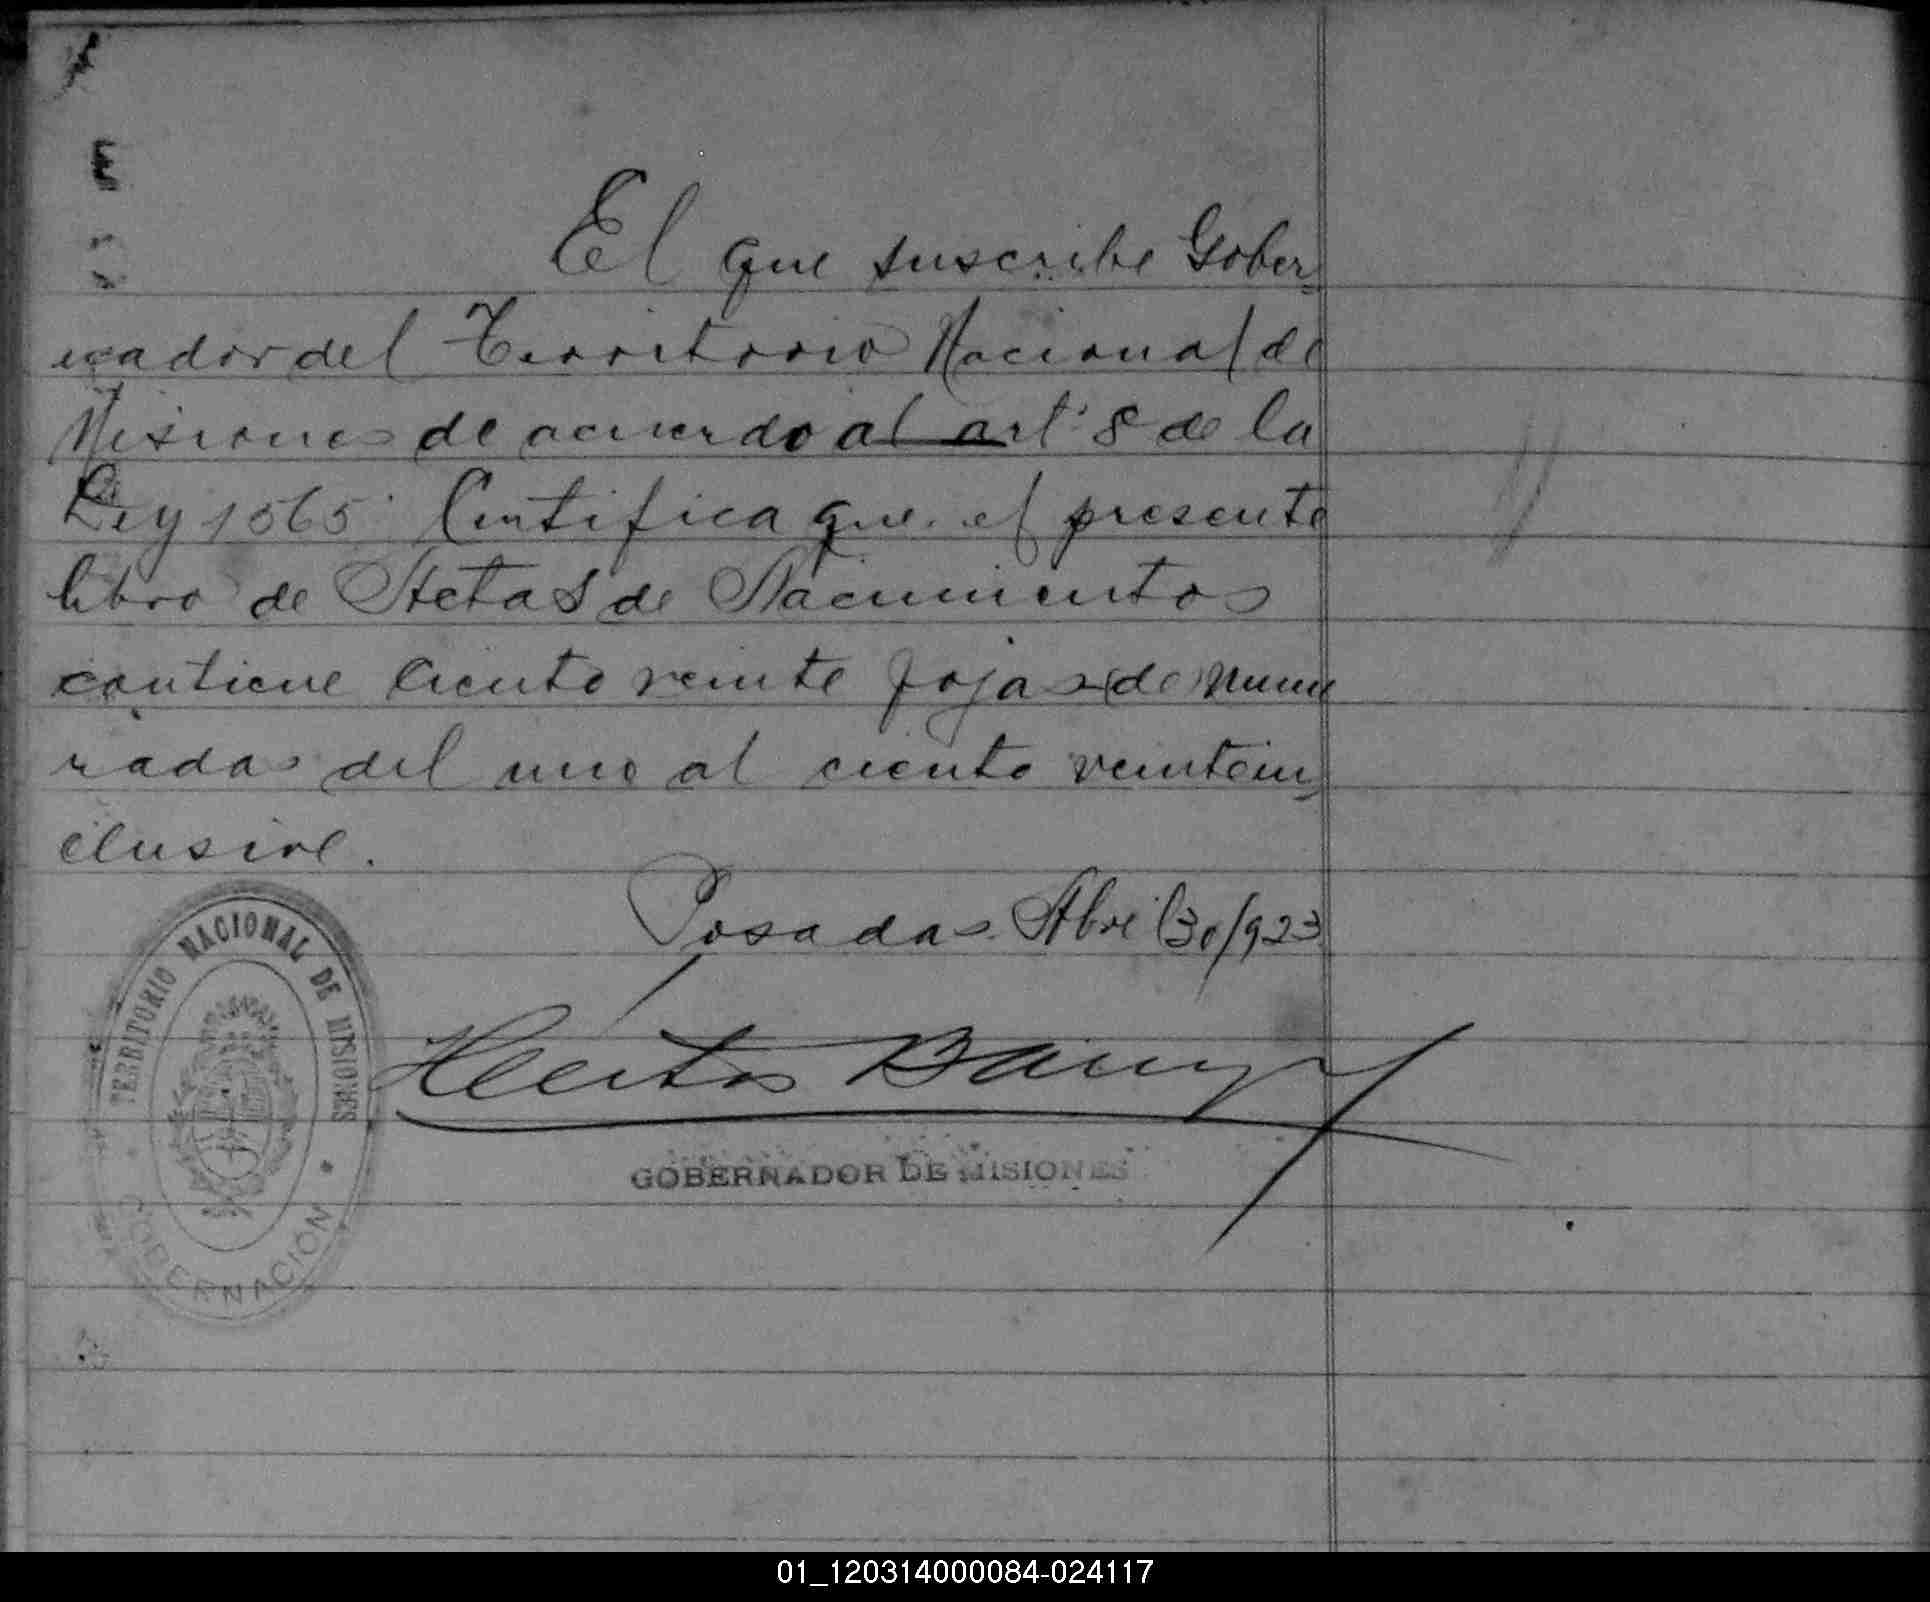 El que suscribe Gober-
nador del Territorio Nacional de
Misiones de acuerdo al art: 8 de la
Ley 1565 Certifica que el presente
libro de Actas de Nacimientos
contiene ciento veinte fojas de nume
radas del uno al ciento veinte in-
clusive.
Posadas Abril 30/923
TERRITORIO NACIONAL DE MISIONES
GOBERNACION
Héctor
GOBERNADOR DE MISIONES
01_120314000084-024117